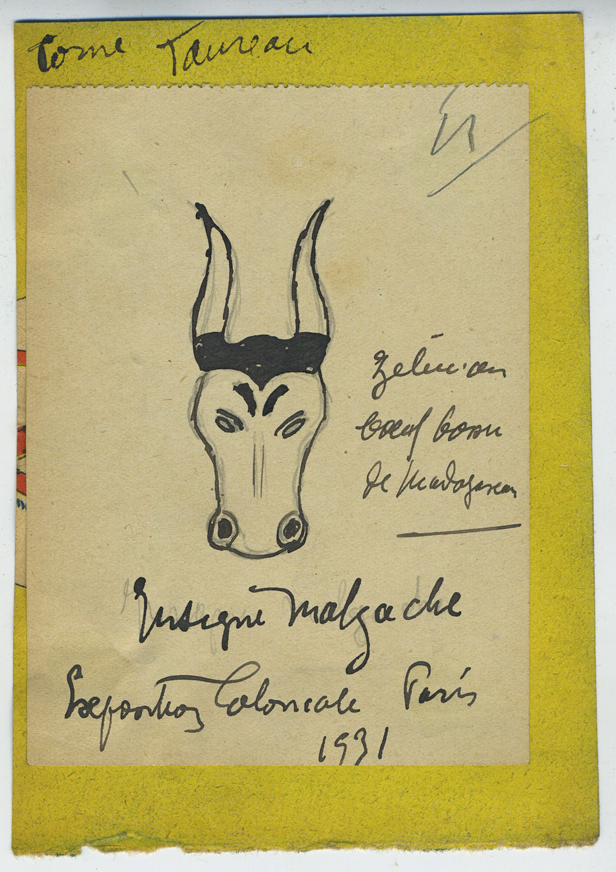 Corne Taureau
ou
boeuf bossu
de Madagascar
Insigne Malgache
Exposition Coloniale Paris
1931